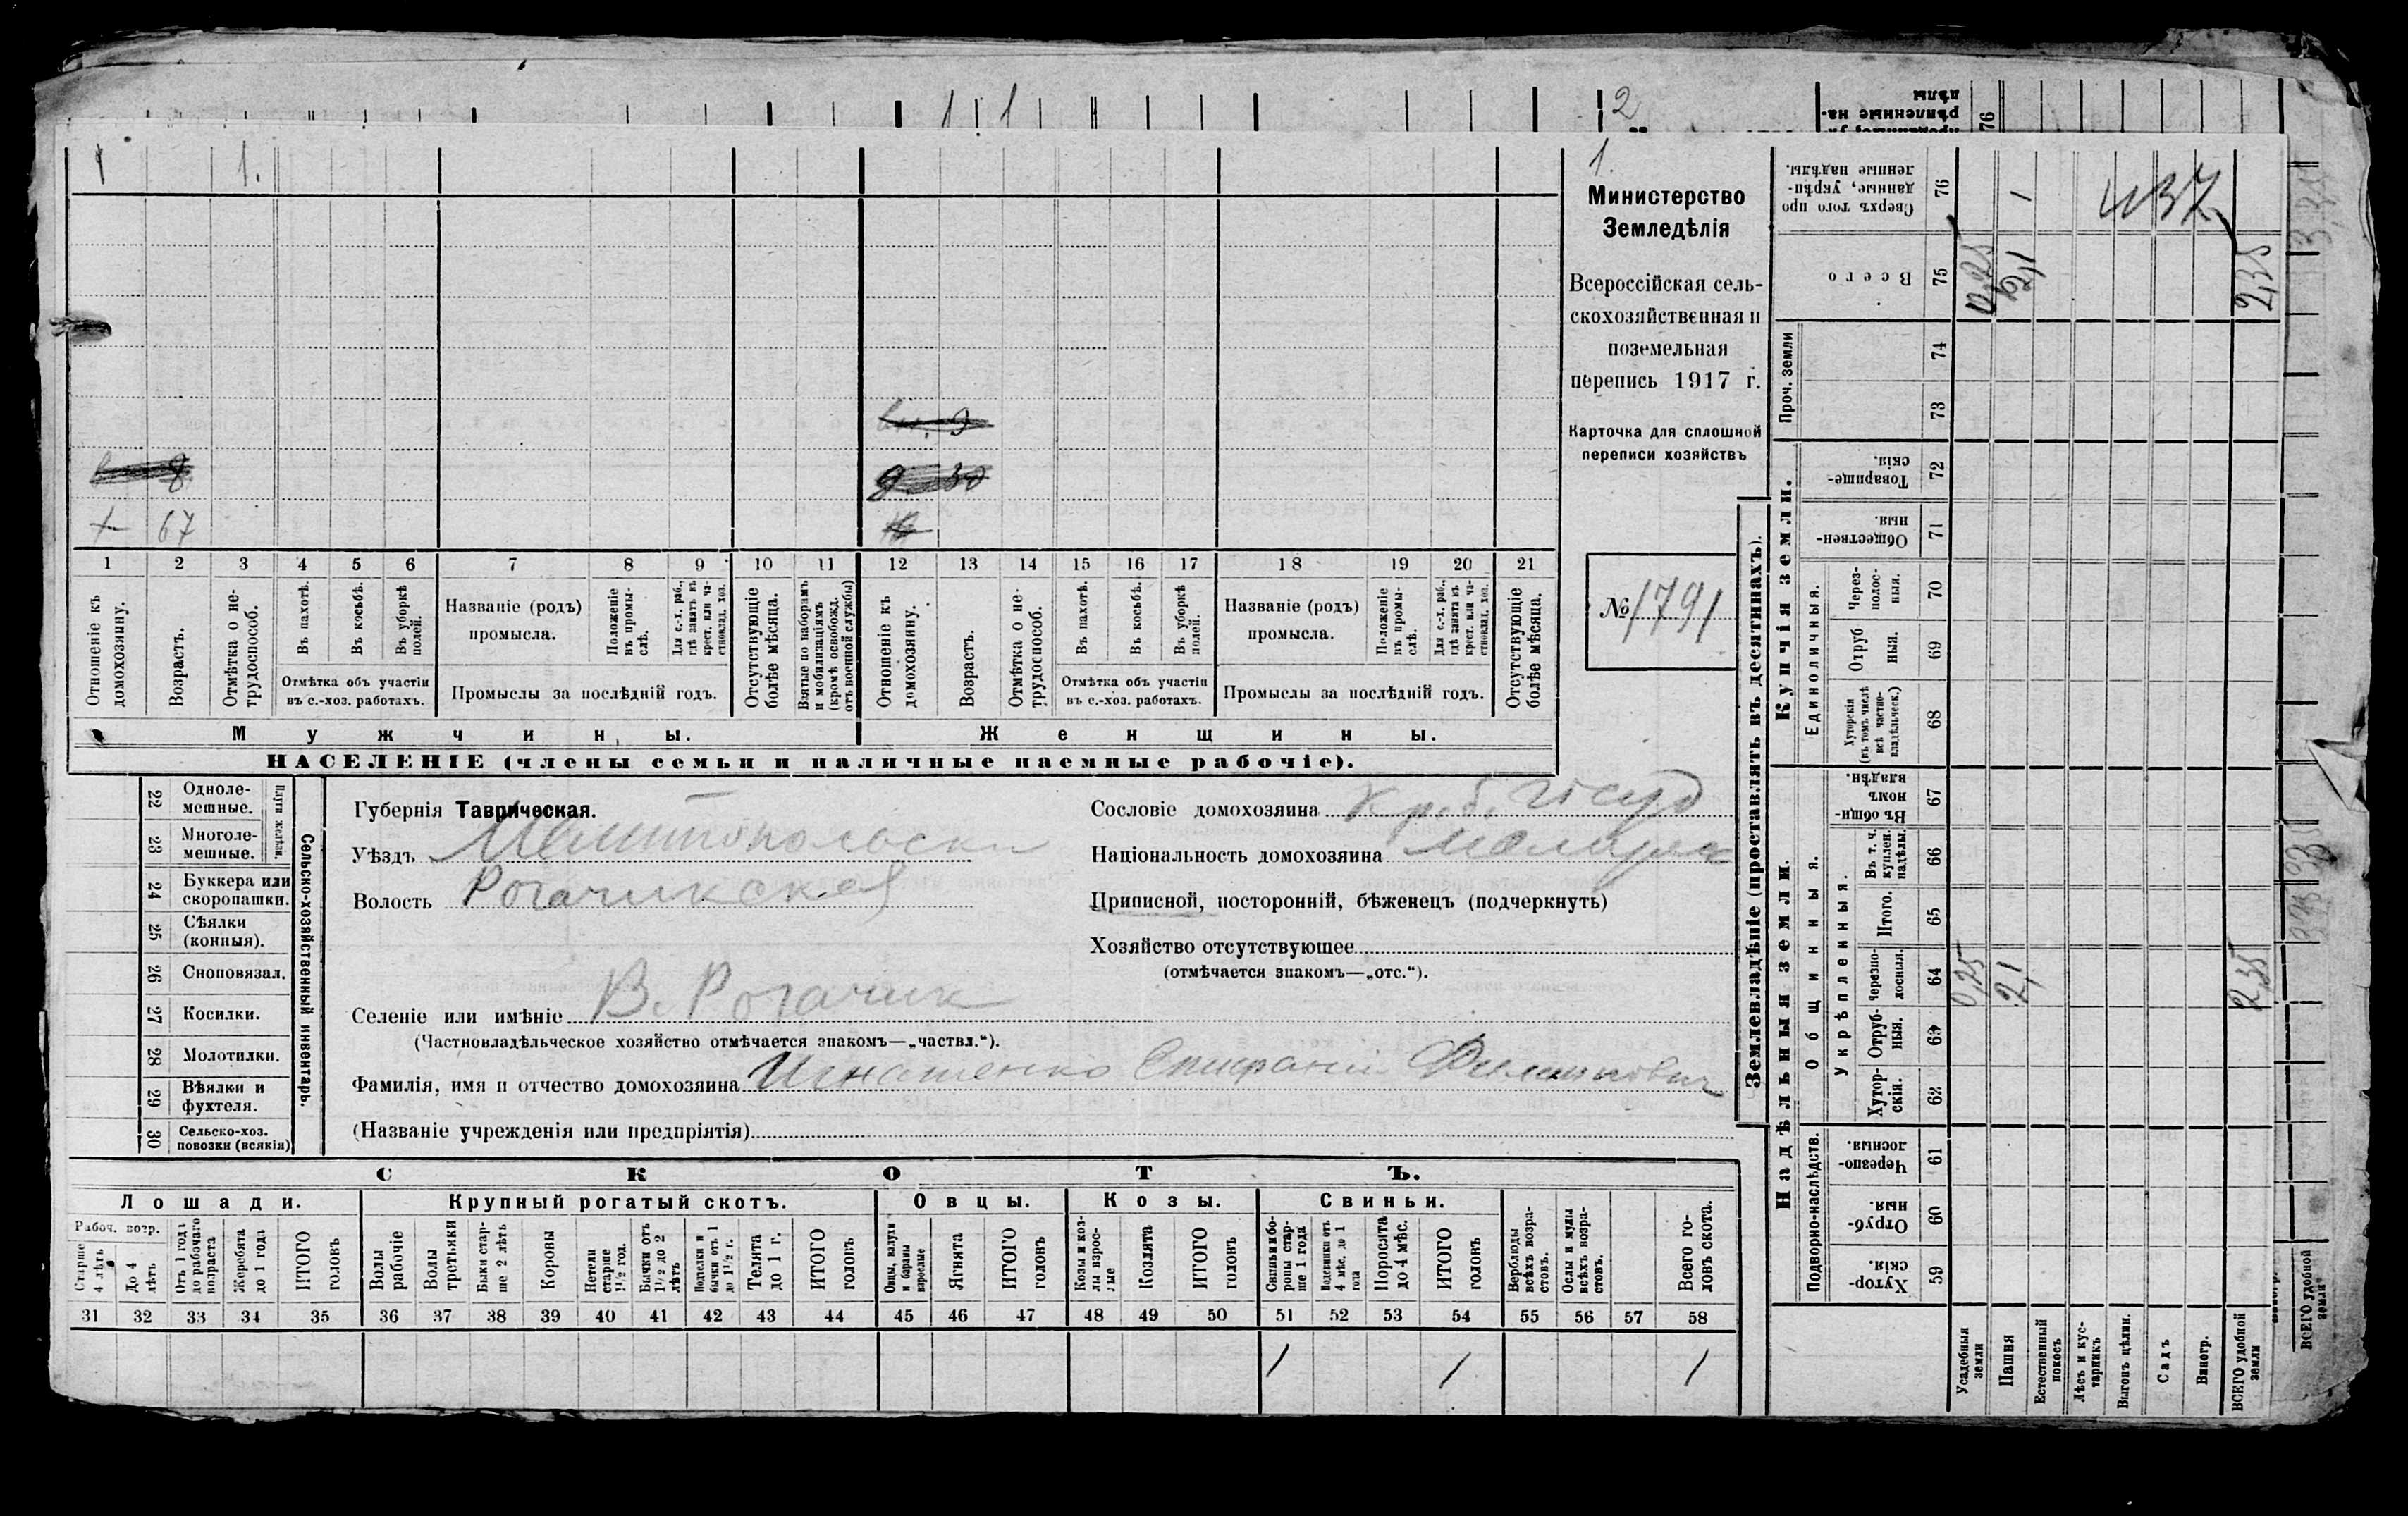 1 1 2
1 1. 1.
Министерство
Земледѣлія
Всероссійская сель-
скохозяйственная и
поземельная
перепись 1917 г.
Карточка для сплошной
переписи хозяйствъ
№ 1791
8 9
30
+ 67
1 2 3 4 5 6 7 8 9 10 11 12 13 14 15 16 17 18 19 20 21
Отношеніе къ домохозяину.
Возрастъ.
Отмѣтка о не-трудоспособ.
Въ пахотѣ.
Въ косьбѣ.
Въ уборкѣ полей.
Отмѣтка объ участіи
въ с.-хоз. работахъ.
Названіе (родъ)
промысла.
Положеніе въ промы-слѣ.
Для с.-х. раб., гдѣ занятъ въ крест. или ча-стновлад. хоз.
Промыслы за послѣдній годъ.
Отсутствующіе болѣе мѣсяца.
Взятые по наборамъ и мобилизаціямъ (кромѣ освобожд. отъ военной службы)
Отношеніе къ домохозяину.
Возрастъ.
Отмѣтка о не-трудоспособ.
Въ пахотѣ.
Въ косьбѣ.
Въ уборкѣ полей.
Отмѣтка объ участіи
въ с.-хоз. работахъ.
Названіе (родъ)
промысла.
Положеніе въ промы-слѣ.
Для с.-х. раб., гдѣ занята въ крест. или ча-стновлад. хоз.
Промыслы за послѣдній годъ.
Отсутствующіе болѣе мѣсяца.
Мужчины. Женщины.
НАСЕЛЕНІЕ (члены семьи и наличные наемные рабочіе).
22 Одноле-мешные.
23 Многоле-мешные.
Плуги желѣзн.
24 Буккера или скоропашки.
25 Сѣялки (конныя).
26 Сноповязал.
27 Косилки.
28 Молотилки.
29 Вѣялки и фухтеля.
30 Сельско-хоз. повозки (всякія)
Сельско-хозяйственный инвентарь.
Губернія Таврическая.
Уѣздъ Мелитопольски
Волость Рогачикская
Сословіе домохозяина Кр.б. госуд
Національность домохозяина малорос
Приписной, посторонній, бѣженецъ (подчеркнуть)
Хозяйство отсутствующее
(отмѣчается знакомъ—„отс.“).
Селеніе или имѣніе В. Рогачик
(Частновладѣльческое хозяйство отмѣчается знакомъ—„частвл.“).
Фамилія, имя и отчество домохозяина Игнатенко Епифаній Филипович
(Названіе учрежденія или предпріятія)
СКОТЪ.
Лошади. Крупный рогатый скотъ. Овцы. Козы. Свиньи.
Рабоч. возр.
Старше 4 лѣтъ
До 4 лѣтъ
Отъ 1 года до рабочаго возраста
Жеребята до 1 года
ИТОГО головъ
Волы рабочіе
Волы третьяки
Быки стар-ше 2 лѣтъ
Коровы
Нетели старше 1½ год.
Бычки отъ 1½ до 2 лѣтъ
Подтелки и бычки отъ 1 до 1½ г.
Телята до 1 г.
ИТОГО головъ
Овцы, валухи и бараны взрослые
Ягнята
ИТОГО головъ
Козы и коз-лы взрос-лые
Козлята
ИТОГО головъ
Свиньи и бо-ровы стар-ше 1 года
Подсвинки отъ 4 мѣс. до 1 года
Поросята до 4 мѣс.
ИТОГО головъ
Верблюды всѣхъ возра-стовъ.
Ослы и мулы всѣхъ возра-стовъ.
Всего го-ловъ скота.
31 32 33 34 35 36 37 38 39 40 41 42 43 44 45 46 47 48 49 50 51 52 53 54 55 56 57 58
1 1 1
Землевладѣніе (проставлять въ десятинахъ).
Надѣльныя земли. Купчія земли.
Подворно-наслѣдств.
Общинныя.
Укрѣпленныя.
Единоличныя.
Проч. земли
76 Сверхъ того про данные, укрѣп-ленные надѣлы.
75 Всего 0,25 2,1 2,35
1 437
74
73
72 Товарище-скія.
71 Обществен-ныя.
70 Через-полос-ныя.
69 Отруб ныя.
68 Хуторскія (въ томъ числѣ всѣ частно-владѣльческ.)
67 Въ общи-номъ владѣн.
66 Въ т. ч. куплен. надѣлы.
65 Итого.
64 Черезпо-лосныя. 0,25 2,1 2,35
63 Отруб-ныя.
62 Хутор-скія.
61 Черезпо-лосныя.
60 Отруб-ныя.
59 Хутор-скія.
Усадебныя земли
Пашня
Естественный покосъ
Лѣсъ и кус-тарникъ
Выгонъ цѣлин.
Садъ
Виногр.
ВСЕГО удобной земли
ВСЕГО удобной земли
76